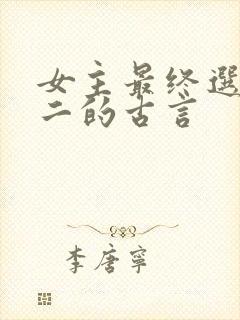 女主最终選
二的古言
李唐寧